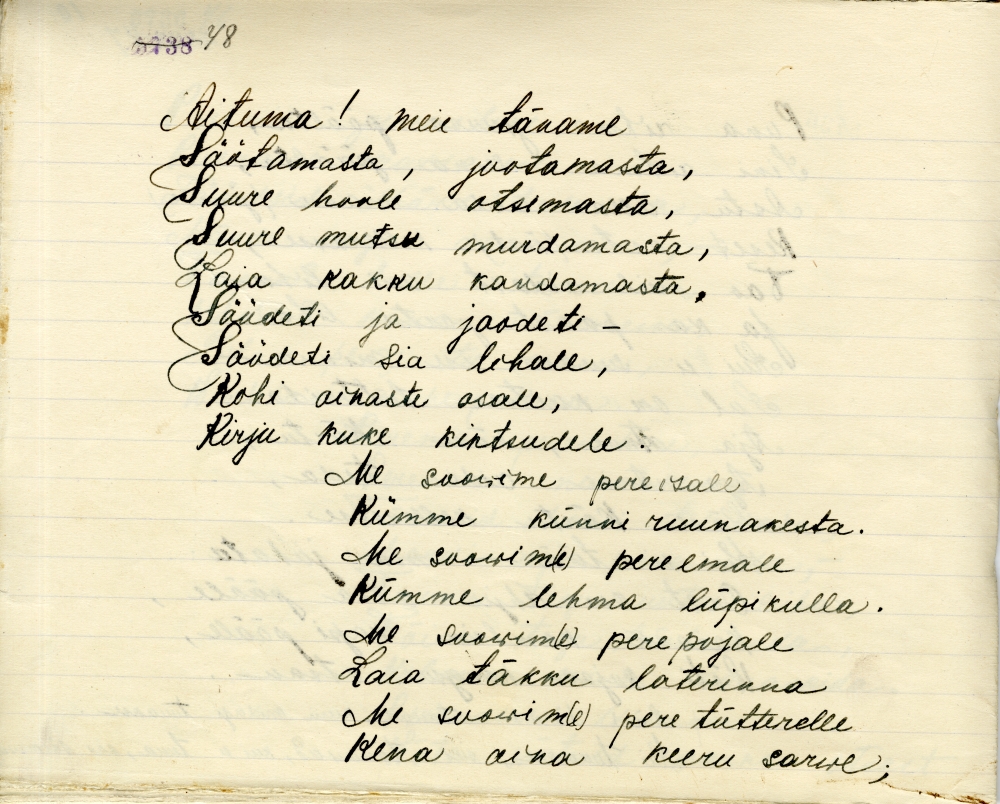 5738 48
Aituma! meie täname
Söötamasta, jootamasta,
Suure hoole otsemasta,
Suure mutsu murdamasta,
Laia kakku kandamasta.
Söödeti ja joodeti –
Söödeti sia lihale,
Kohi oinaste osale,
Kirju kuke kintsudele.
Me soowime pereisale
Kümme künni ruunakesta.
Me soowim(e) pereemale
Kümme lehma lüpikulla.
Me soowim(e) pere pojale
Laia täkku loterinna
Me soowim(e) pere tütterelle
Kena aina keeru sarwe;